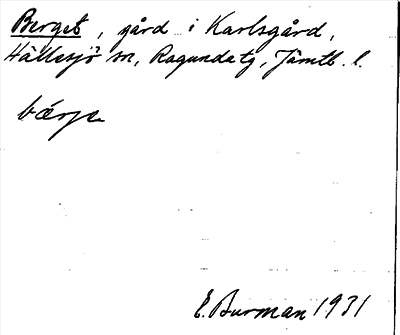 Berget, gård i Karlsgård,
Hällesjö sn, Ragunda tg, Jämtl. l.
E. Burman 1931